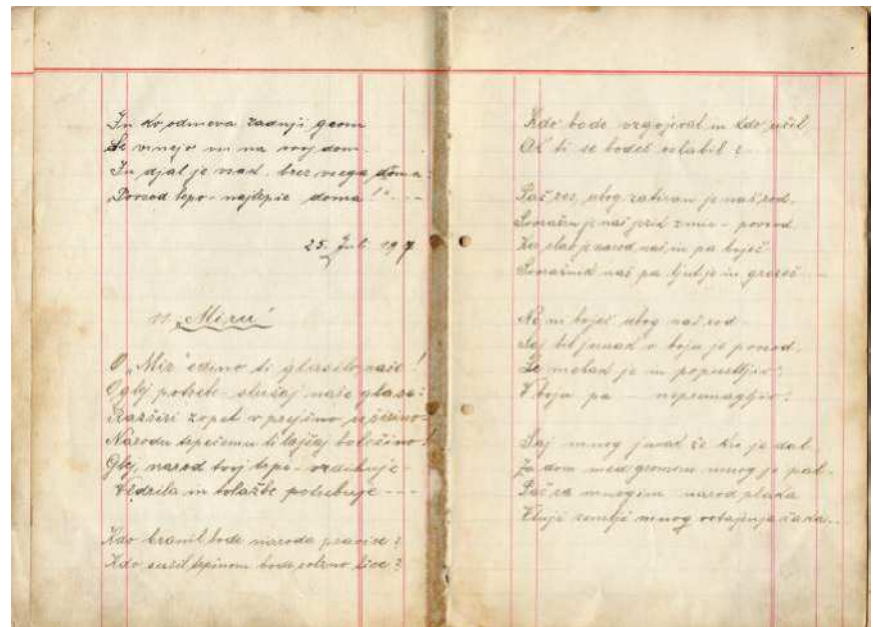 In ko odmeva zadnji grom
Se vrnejo vsi na svoj dom.
In djal je vsak, brez vsega doma:
„Povsod lepo - najlepše doma!“ - - -
25. Juli 1917
11 „Miru“
O „Mir“ edino ti glasilo naše!
Oglej potrebe - slušaj naše glase:
Razširi zopet v prejšno se širino -
Narodu trpečemu ti lajšaj bolečino!
Glej, narod tvoj trpe - vzdihuje -
Vedrila in tolažbe potrebuje - - -
Kdo branil bode naroda pravice?
Kdo sušil trpinom bode solzno lice?
Kdo bode vzgojeval in kdo učil,
Ak ti se bodeš oslabil? - -
Pač res, ubog zatiran je naš rod,
Sovražen je naš jezik zmir - povsod
Ker slab je narod naš, in pa boječ
Sovražnik naš pa ljut je in grozeč - -
Ne, ni boječ ubog naš rod -
Saj bil junak v boju je povsod.
Le mehak je in popustljiv;
V boju pa - nepremagljiv!
Saj mnog junak že kri je dal,
Za dom med gromom mnog je pal -
Pač za mnogim narod plaka
V tuji zemlji mnog vstajenja čaka...